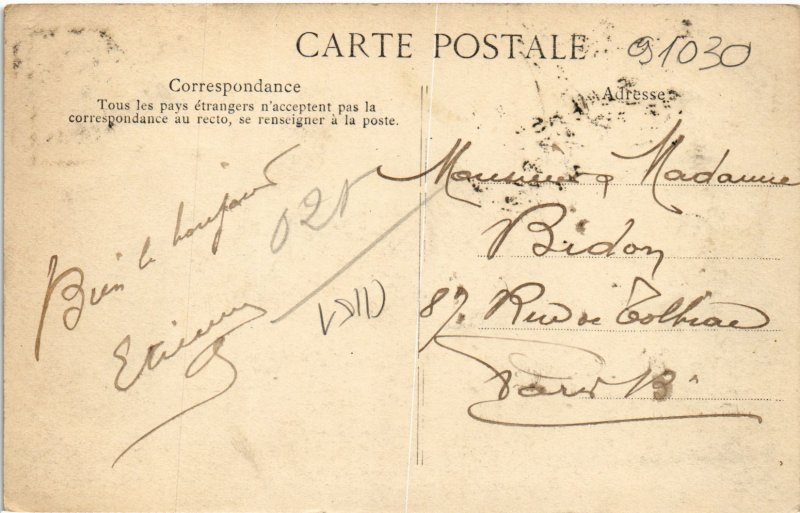 CARTE POSTALE
91030
Correspondance
Tous les pays étrangers n'acceptent pas la
correspondance au recto, se renseigner à la poste.
Adresse
Bien le bonjour
Etienne
021
Monsieur & Madame
Bidon
87. Rue de Tolbiac
Paris 13